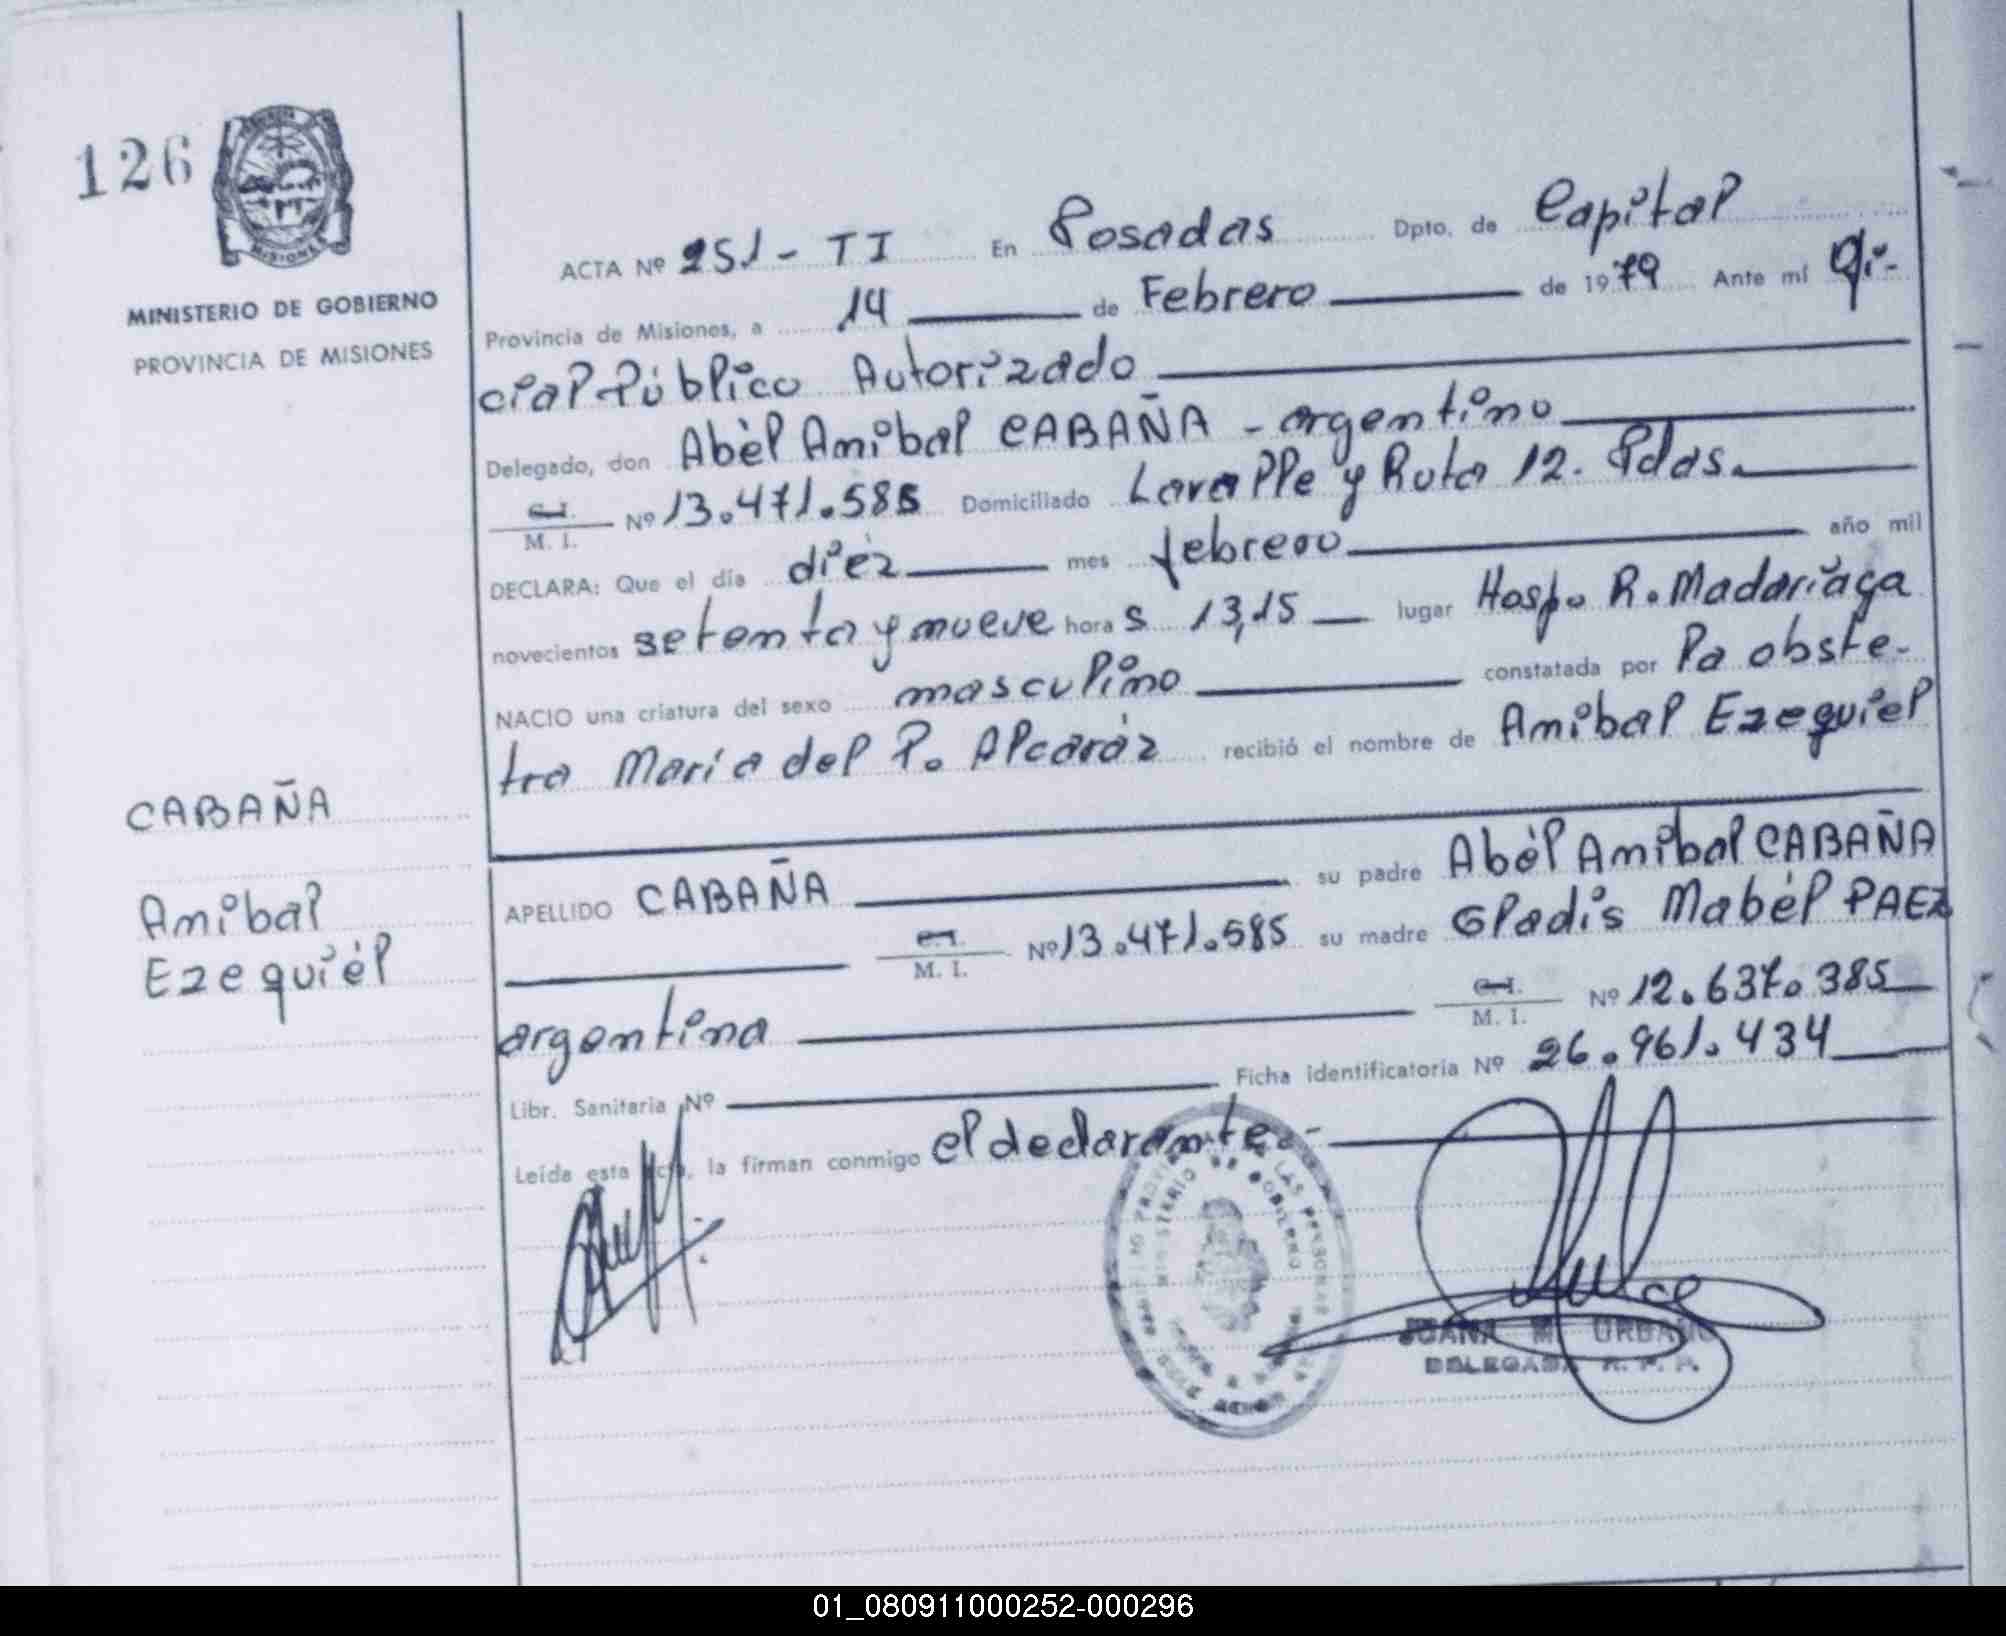 126
MISIONES
MINISTERIO DE GOBIERNO
PROVINCIA DE MISIONES
ACTA Nº 251 - TI En Posadas Dpto. de Capital
Provincia de Misiones, a 14 de Febrero de 1979 Ante mí Ofi-
cial Público Autorizado
Delegado, don Abèl Anibal CABAÑA - argentino
C.I. M. I. Nº 13.471.585 Domiciliado Lavalle y Ruta 12. Pdas.
DECLARA: Que el día diez mes febrero año mil
novecientos setenta y nueve horas 13,15 lugar Hosp. R. Madariaga
NACIO una criatura del sexo masculino constatada por la obste-
tra María del P. Alcaráz recibió el nombre de Anibal Ezequiel
CABAÑA
Anibal
Ezequiél
APELLIDO CABAÑA su padre Abél Anibal CABAÑA
C.I. M. I. Nº 13.471.585 su madre Gladis Mabél PAEZ
argentina C.I. M. I. Nº 12.637.385
Libr. Sanitaria Nº Ficha identificatoria Nº 26.961.434
Leída esta acta, la firman conmigo el declarante.-
MINISTERIO DE GOBIERNO
LAS PERSONAS
JUANA M. URBANO
DELEGADA R. P. P.
01_080911000252-000296